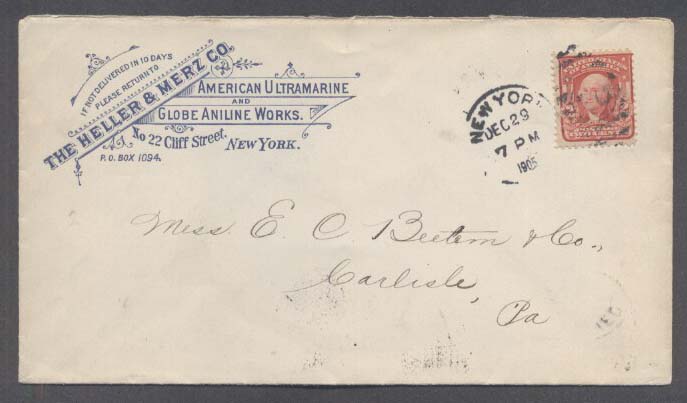 IF NOT DELIVERED IN 10 DAYS
PLEASE RETURN TO
THE HELLER & MERZ CO.
AMERICAN ULTRAMARINE
AND
GLOBE ANILINE WORKS.
No 22 Cliff Street.
NEW YORK.
P.O. BOX 1094.
NEW YORK
DEC 29
7 PM
1905
Mess. E. C. Beetem & Co.,
Carlisle,
Pa